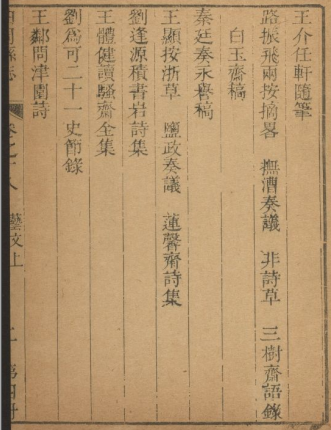 王介任軒隨筆
路振飛兩按摘畧　撫漕奏議　非詩草　三樹齋語錄
白玉齋稿
秦廷奏永譽稿
王顯按浙草　鹽政奏議　蓮馨齋詩集
劉逢源積書岩詩集
王體健讀騷齋全集
劉爲可二十一史節錄
王鄰問津園詩
藝文上